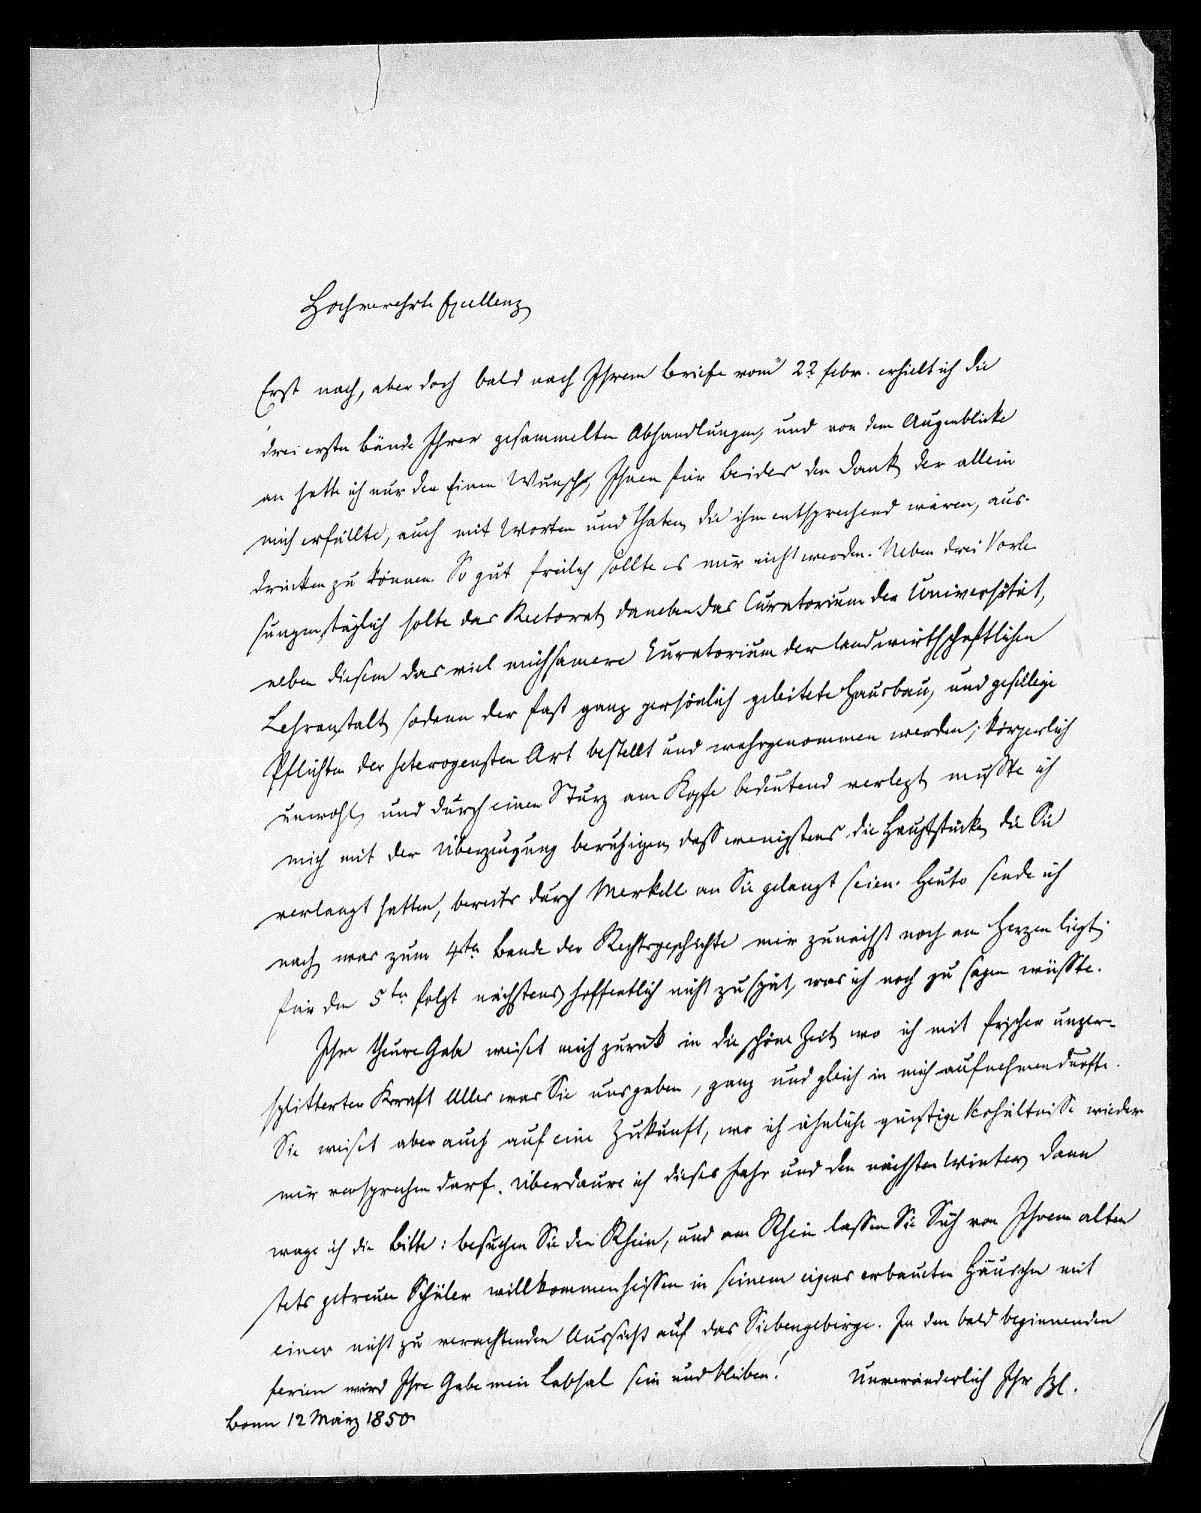 Hochverehrte Excellenz
Erst nach, aber doch bald nach Ihrem Briefe vom 22 Febr. erhielt ich die
drei ersten Bände Ihrer gesammelten Abhandlungen, und von dem Augenblicke
an hatte ich nur den Einen Wunsch, Ihnen für Beides den Dank der allein
mich erfüllte, auch mit Worten und Thaten, die ihm entsprechend wären, aus-
drücken zu können. So gut freilich sollte es mir nicht werden. Neben drei Vorle-
sungen täglich sollte das Rectorat, daneben das Curatorium der Universität,
neben diesem das viel mühsamere Curatorium der landwirthschaftlichen
Lehranstalt, sodann der fast ganz persönlich geleitete Hausbau, und gesellige
Pflichten der heterogensten Art bestellt und wahrgenommen werden; körperlich
unwohl, und durch einen Sturz am Kopfe bedeutend verlezt, musste ich
mich mit der Überzeugung beruhigen, dass wenigstens die Hauptstücke, die Sie
verlangt hatten, bereits durch Merkell an Sie gelangt seien. Heute sende ich
nach, was zum 4ten Bande der Rechtsgeschichte mir zunächst noch am Herzen liegt;
für den 5ten folgt nächstens, hoffentlich nicht zu spät, was ich noch zu sagen wüsste.
Ihre theure Gabe weiset mich zurück in die schöne Zeit, wo ich mit frischer unzer-
splitterter Kraft Alles was Sie uns gaben, ganz und gleich in mich aufnehmen durfte.
Sie weiset aber auch auf eine Zukunft, wo ich ähnliche günstige Verhältnisse wieder
mir versprechen darf. Überdaure ich dieses Jahr und den nächsten Winter, dann
wage ich die Bitte: besuchen Sie den Rhein, und am Rhein lassen Sie Sich von Ihrem alten
stets getreuen Schüler willkommen heissen in seinem eigens erbauten Häuschen mit
einer nicht zu verachtenden Aussicht auf das Siebengebirge. In den bald beginnenden
Ferien wird Ihre Gabe mein Labsal sein und bleiben! Unveränderlich Ihr
Bonn 12 März 1850